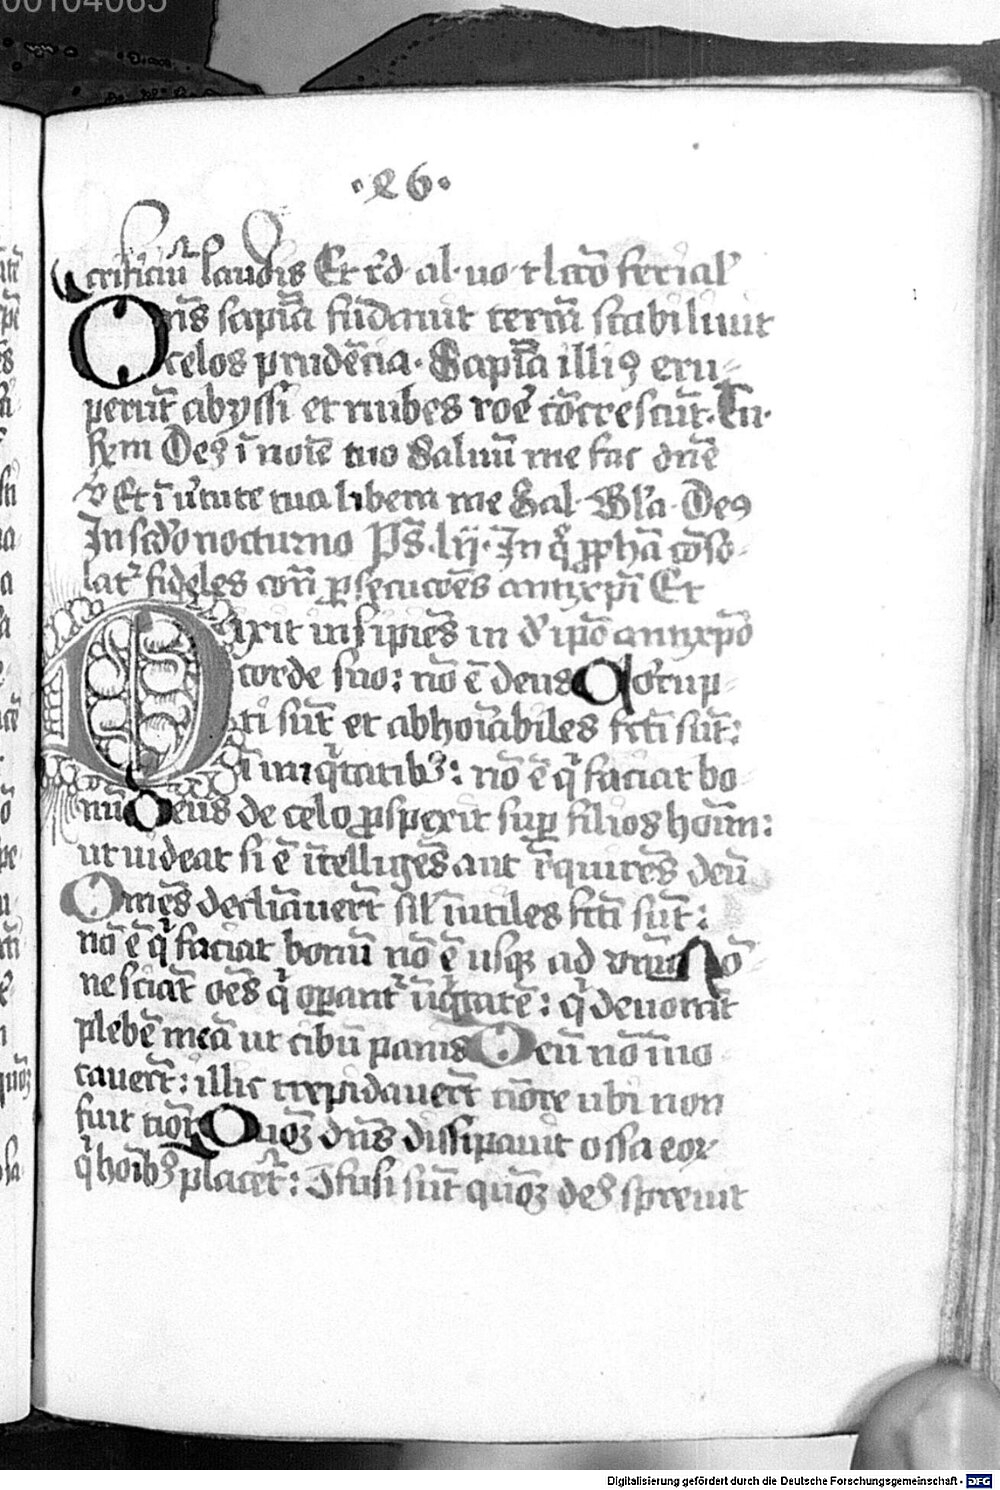 00104065
·26·
crificiū laudis Et rd· al· uo· t lcō ferial'
Dn̄s sapīa fūdauit terrā stabiliuit
celos prudēcia· Sapīa illiꝰ eru-
perūt abyssi et nubes rore cōcrescūt· Tu·
Deꝰ ī noīe tuo Saluū me fac dn̄e
Et ī uʼtute tua libera me Gal· Deꝰ
In scdo nocturno Ps̄· lij· In q̊ ꝓpħā cōso-
lat᷑ fideles cont͂ ꝑsecucōēs antixp̄i Et
Dixit insipiēs in dʼ ip̄o antixp̄o
corde suo: nō ē deus Corrup-
ti sūt et abhoīabiles fcti sūt:
ī iniqͥtatibꝰ: nō ē qͥ faciat bo-
nū Deus de celo ꝓspexit suꝑ filios hoīm:
ut uideat si ē ītelligēs aut rʼquirēs deū
Omēs decliāuerūt sil' īutiles fcti sūt:
nō ē qͥ faciat bonū nō ē usqꝫ ad vnū No-
ne sciāt oēs qͥ oꝑant᷑ īiqͥtatē: qͥ deuorāt
plebē meā ut cibū panis Deū nō īuo-
cauerūt: illic trepidauerūt tiōre ubi non
fuit tiōr Quoꝫ dn̄s dissipauit ossa eoꝝ
qͥ hoībꝰ placēt: 9fusi sūt quōꝫ deꝰ spreuit
Digitalisierung gefördert durch die Deutsche Forschungsgemeinschaft - DFG